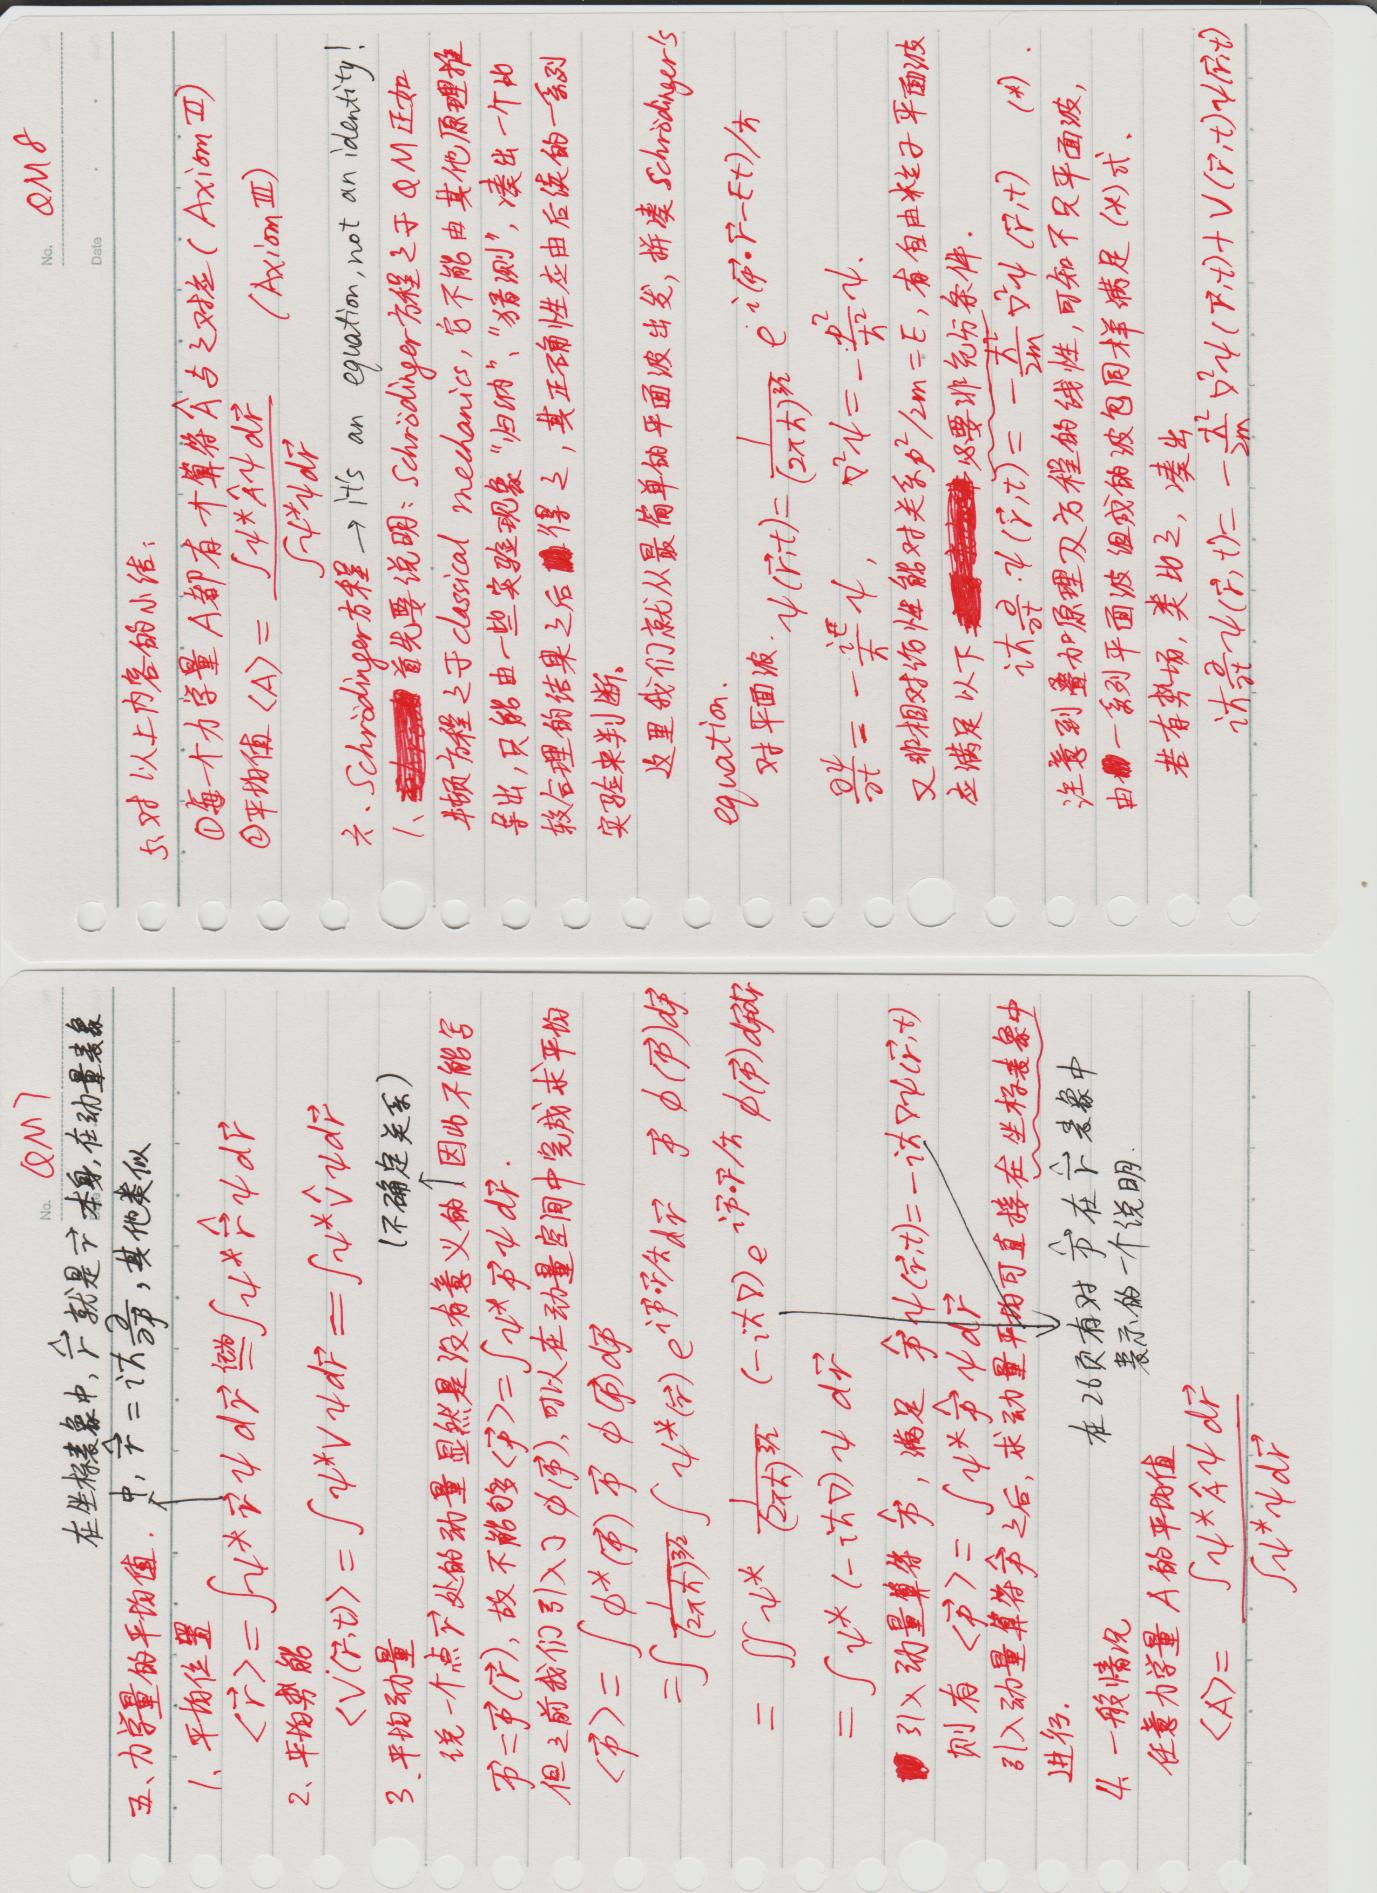 No. QM7
在坐标表象中, r̂ 就是 r⃗ 本身, 在动量表象
中, r̂ = iħ ∂/∂p⃗, 其他类似
五、力学量的平均值.
1、平均位置
⟨r⃗⟩ = ∫ψ* r⃗ ψ dr⃗ 记为= ∫ψ* r̂ ψ dr⃗
2、平均势能
⟨V(r⃗,t)⟩ = ∫ψ*Vψdr⃗ = ∫ψ*V̂ψdr⃗
3、平均动量
(不确定关系)
说一个点r⃗处的动量显然是没有意义的, 因此不能写
p⃗=p⃗(r⃗), 故不能够⟨p⃗⟩=∫ψ* p⃗ ψ dr⃗.
但之前我们引入了 ϕ(p⃗), 可以在动量空间中完成求平均
⟨p⃗⟩ = ∫ϕ*(p⃗) p⃗ ϕ(p⃗)dp⃗
= ∫ 1/(2πħ)^{3/2} ∫ψ*(r⃗) e^{ip⃗·r⃗/ħ}dr⃗ p⃗ ϕ(p⃗)dp⃗
= ∬ψ* 1/(2πħ)^{3/2} (-iħ∇)e^{ip⃗·r⃗/ħ} ϕ(p⃗)dp⃗dr⃗
= ∫ψ*(-iħ∇)ψ dr⃗
引入动量算符 p̂, 满足 p̂ψ(r⃗,t)=-iħ∇ψ(r⃗,t)
则有 ⟨p⃗⟩ = ∫ψ* p̂ ψdr⃗
引入动量算符p̂之后, 求动量平均可直接在坐标表象中
进行.
在26页有对 p̂ 在 r̂ 表象中
表示的一个说明.
4、一般情况
任意力学量A的平均值
⟨A⟩= ∫ψ*Âψdr⃗ / ∫ψ*ψdr⃗
No. QM8
Date
5、对以上内容的小结:
①每一个力学量A都有一个算符Â与之对应(Axiom Ⅱ)
②平均值⟨A⟩= ∫ψ*Âψdr⃗ / ∫ψ*ψdr⃗ (Axiom Ⅲ)
六、Schrödinger方程 → it's an equation, not an identity!
1、首先要说明: Schrödinger方程之于QM正如
牛顿方程之于classical mechanics, 它不能由其他原理推
导出, 只能由一些实验现象“归纳”、“猜测”, 凑出一个比
较合理的结果之后得之, 其正确性应由后续的一系列
实验来判断。
这里我们就从最简单的平面波出发, 拼凑Schrödinger's
equation.
对平面波. ψ(r⃗,t)= 1/(2πħ)^{3/2} e^{i(p⃗·r⃗-Et)/ħ}
∂ψ/∂t = -iE/ħ ψ, ∇²ψ=-p²/ħ² ψ.
又非相对论性能动关系p²/2m=E, 有自由粒子平面波
应满足以下必要非充分条件.
iħ ∂/∂t ψ(r⃗,t) = -ħ²/2m ∇²ψ(r⃗,t) (*).
注意到叠加原理及方程的线性, 可知不只平面波,
由一系列平面波组成的波包同样满足(*)式.
若有势场, 类比之, 凑出
iħ ∂/∂t ψ(r⃗,t)= -ħ²/2m ∇²ψ(r⃗,t)+V(r⃗,t)ψ(r⃗,t)